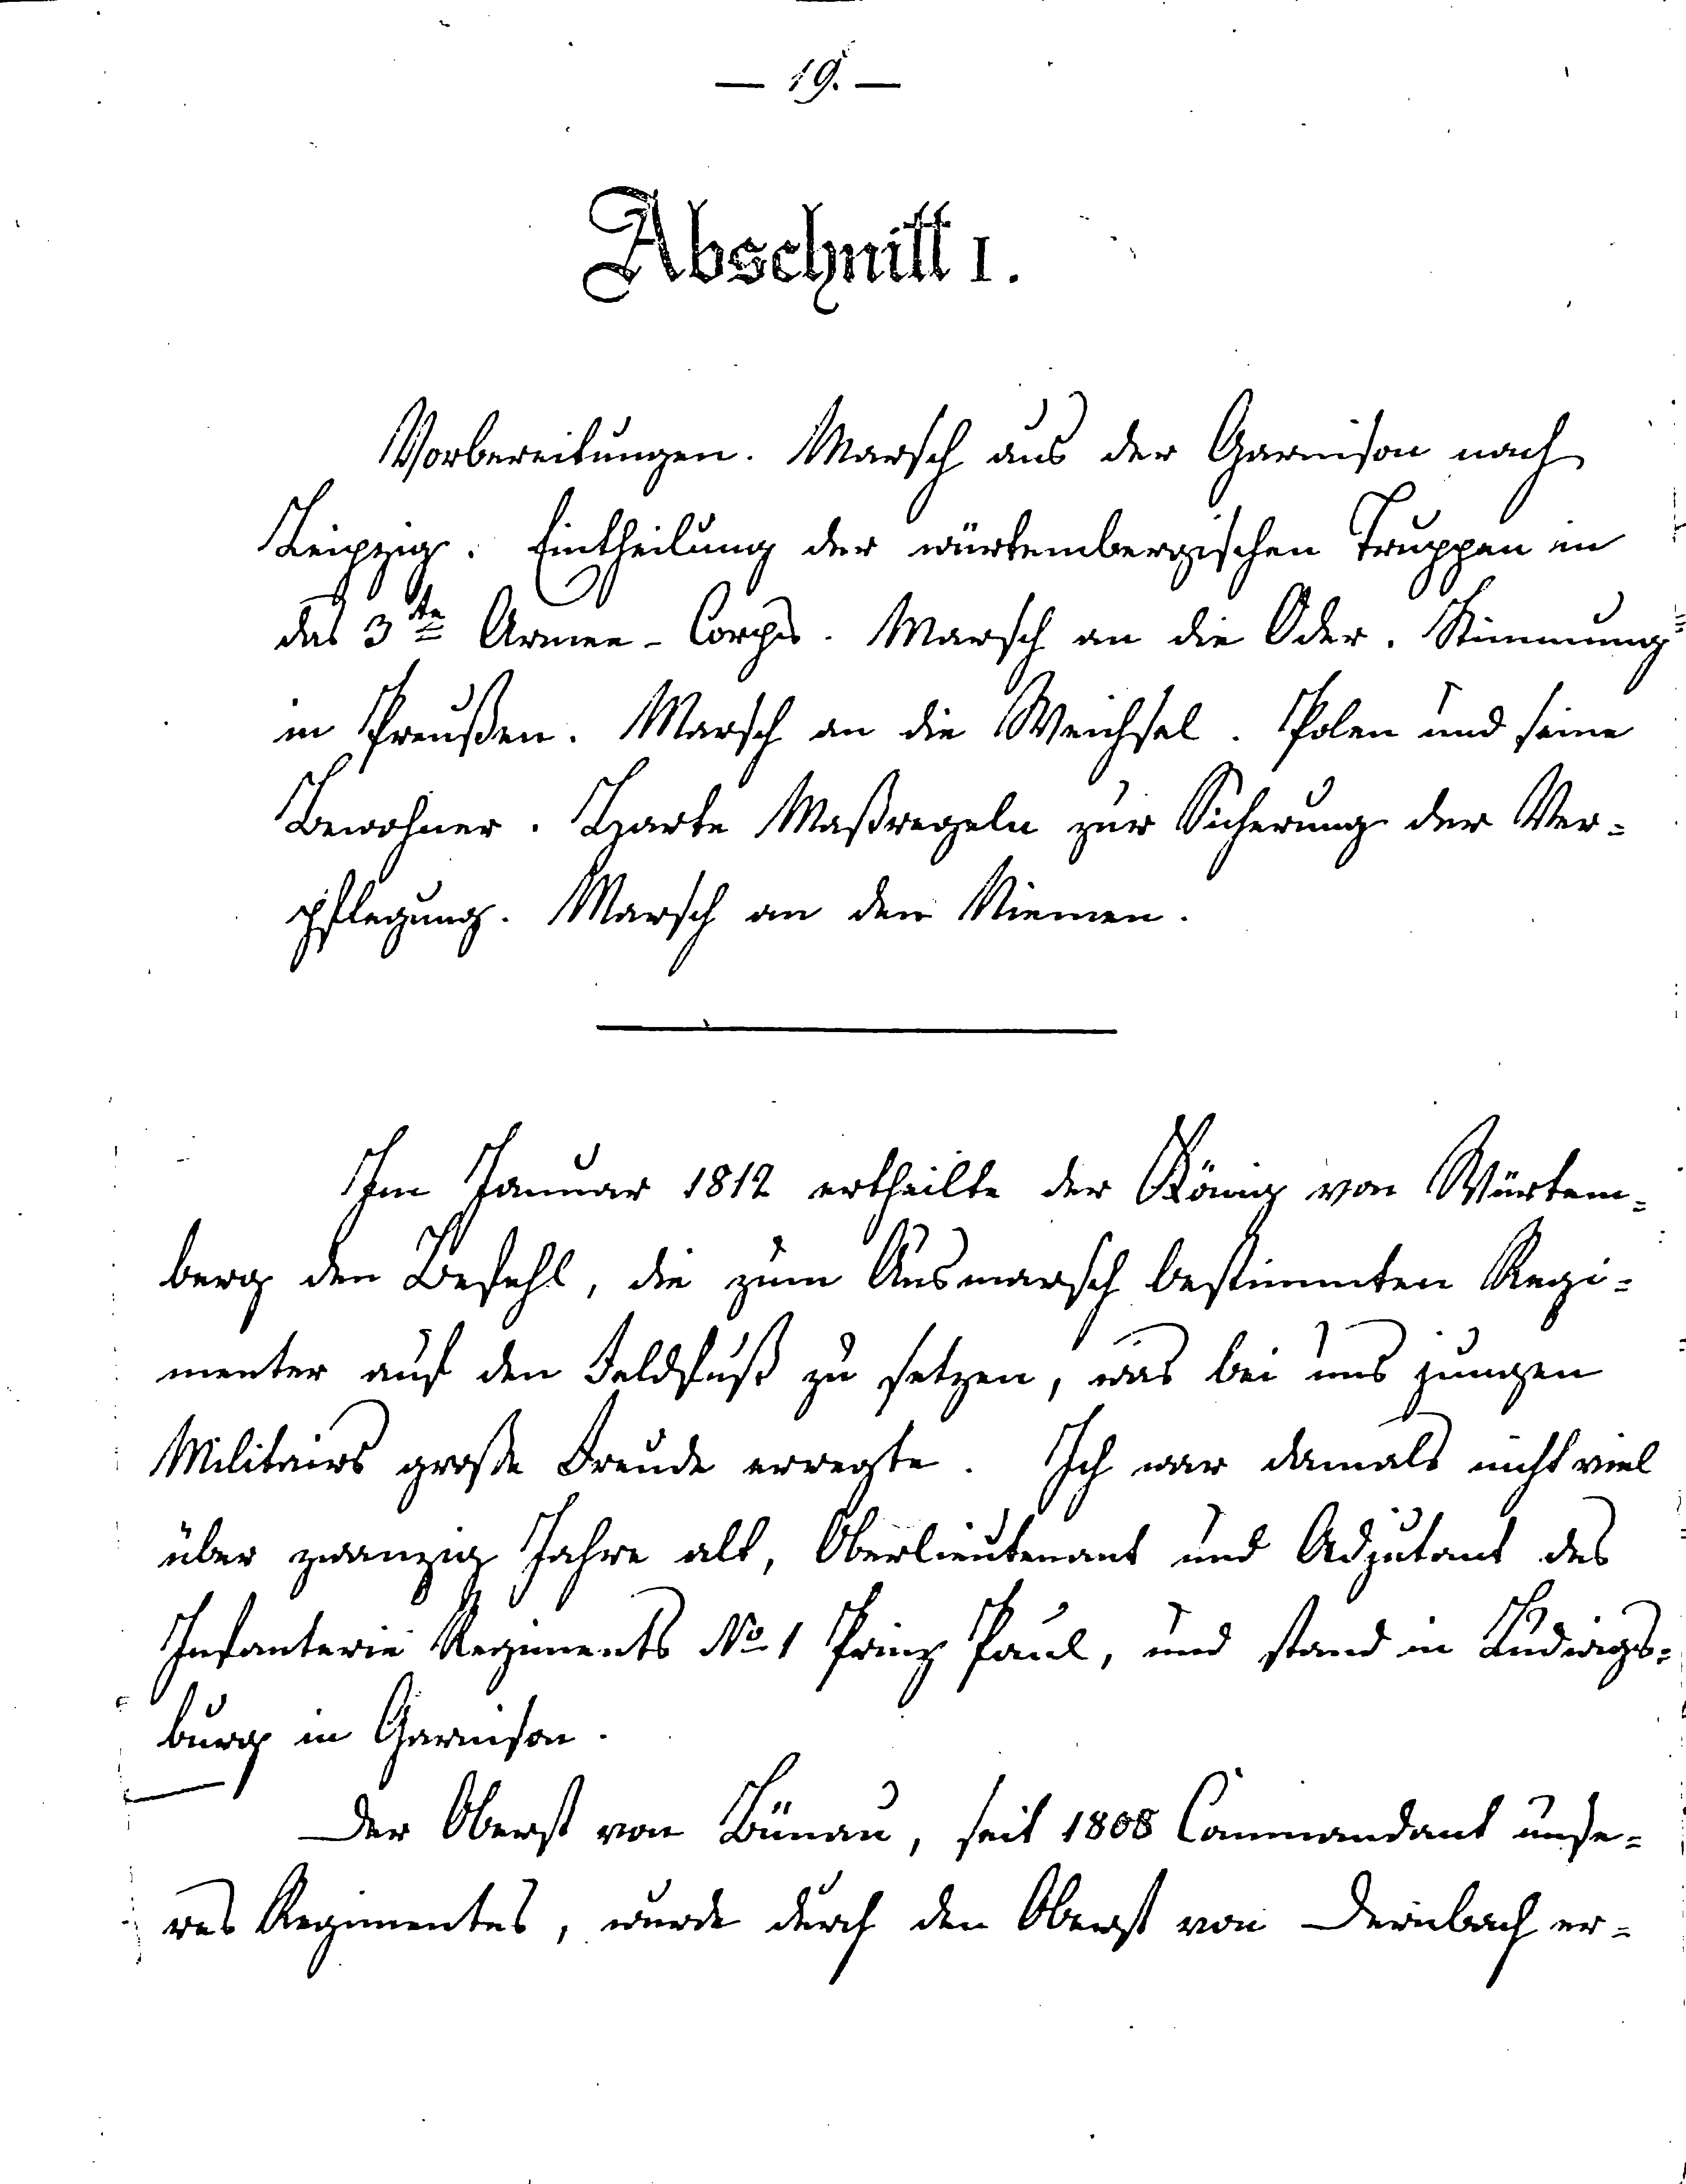 — 19. —
Abschnitt I.
Vorbereitungen. Marsch aus der Garnison nach
Leipzig. Eintheilung der würtembergischen Truppen in
das 3te Armee-Corps. Marsch an die Oder. Stimmung
in Preußen. Marsch an die Weichsel. Polen und seine
Bewohner. Harte Maßregeln zur Sicherung der Ver=
pflegung. Marsch an den Niemen.
Im Januar 1812 ertheilte der König von Würtem=
berg den Befehl, die zum Ausmarsch bestimmten Regi=
menter auf den Feldfuß zu setzen, was bei uns jungen
Militairs große Freude erregte. Ich war damals nicht viel
über zwanzig Jahre alt, Oberlieutenant und Adjutant des
Infanterie Regiments No 1 Prinz Paul, und stand in Ludwigs=
burg in Garnison.
Der Oberst von Bünau, seit 1808 Commandant unse=
res Regimentes, wurde durch den Oberst von Dernbach er=